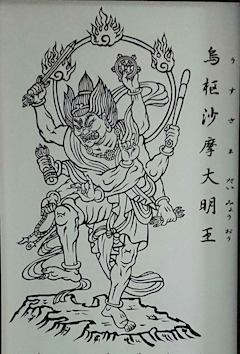 烏枢沙摩大明王
うすさまだいみょうおう